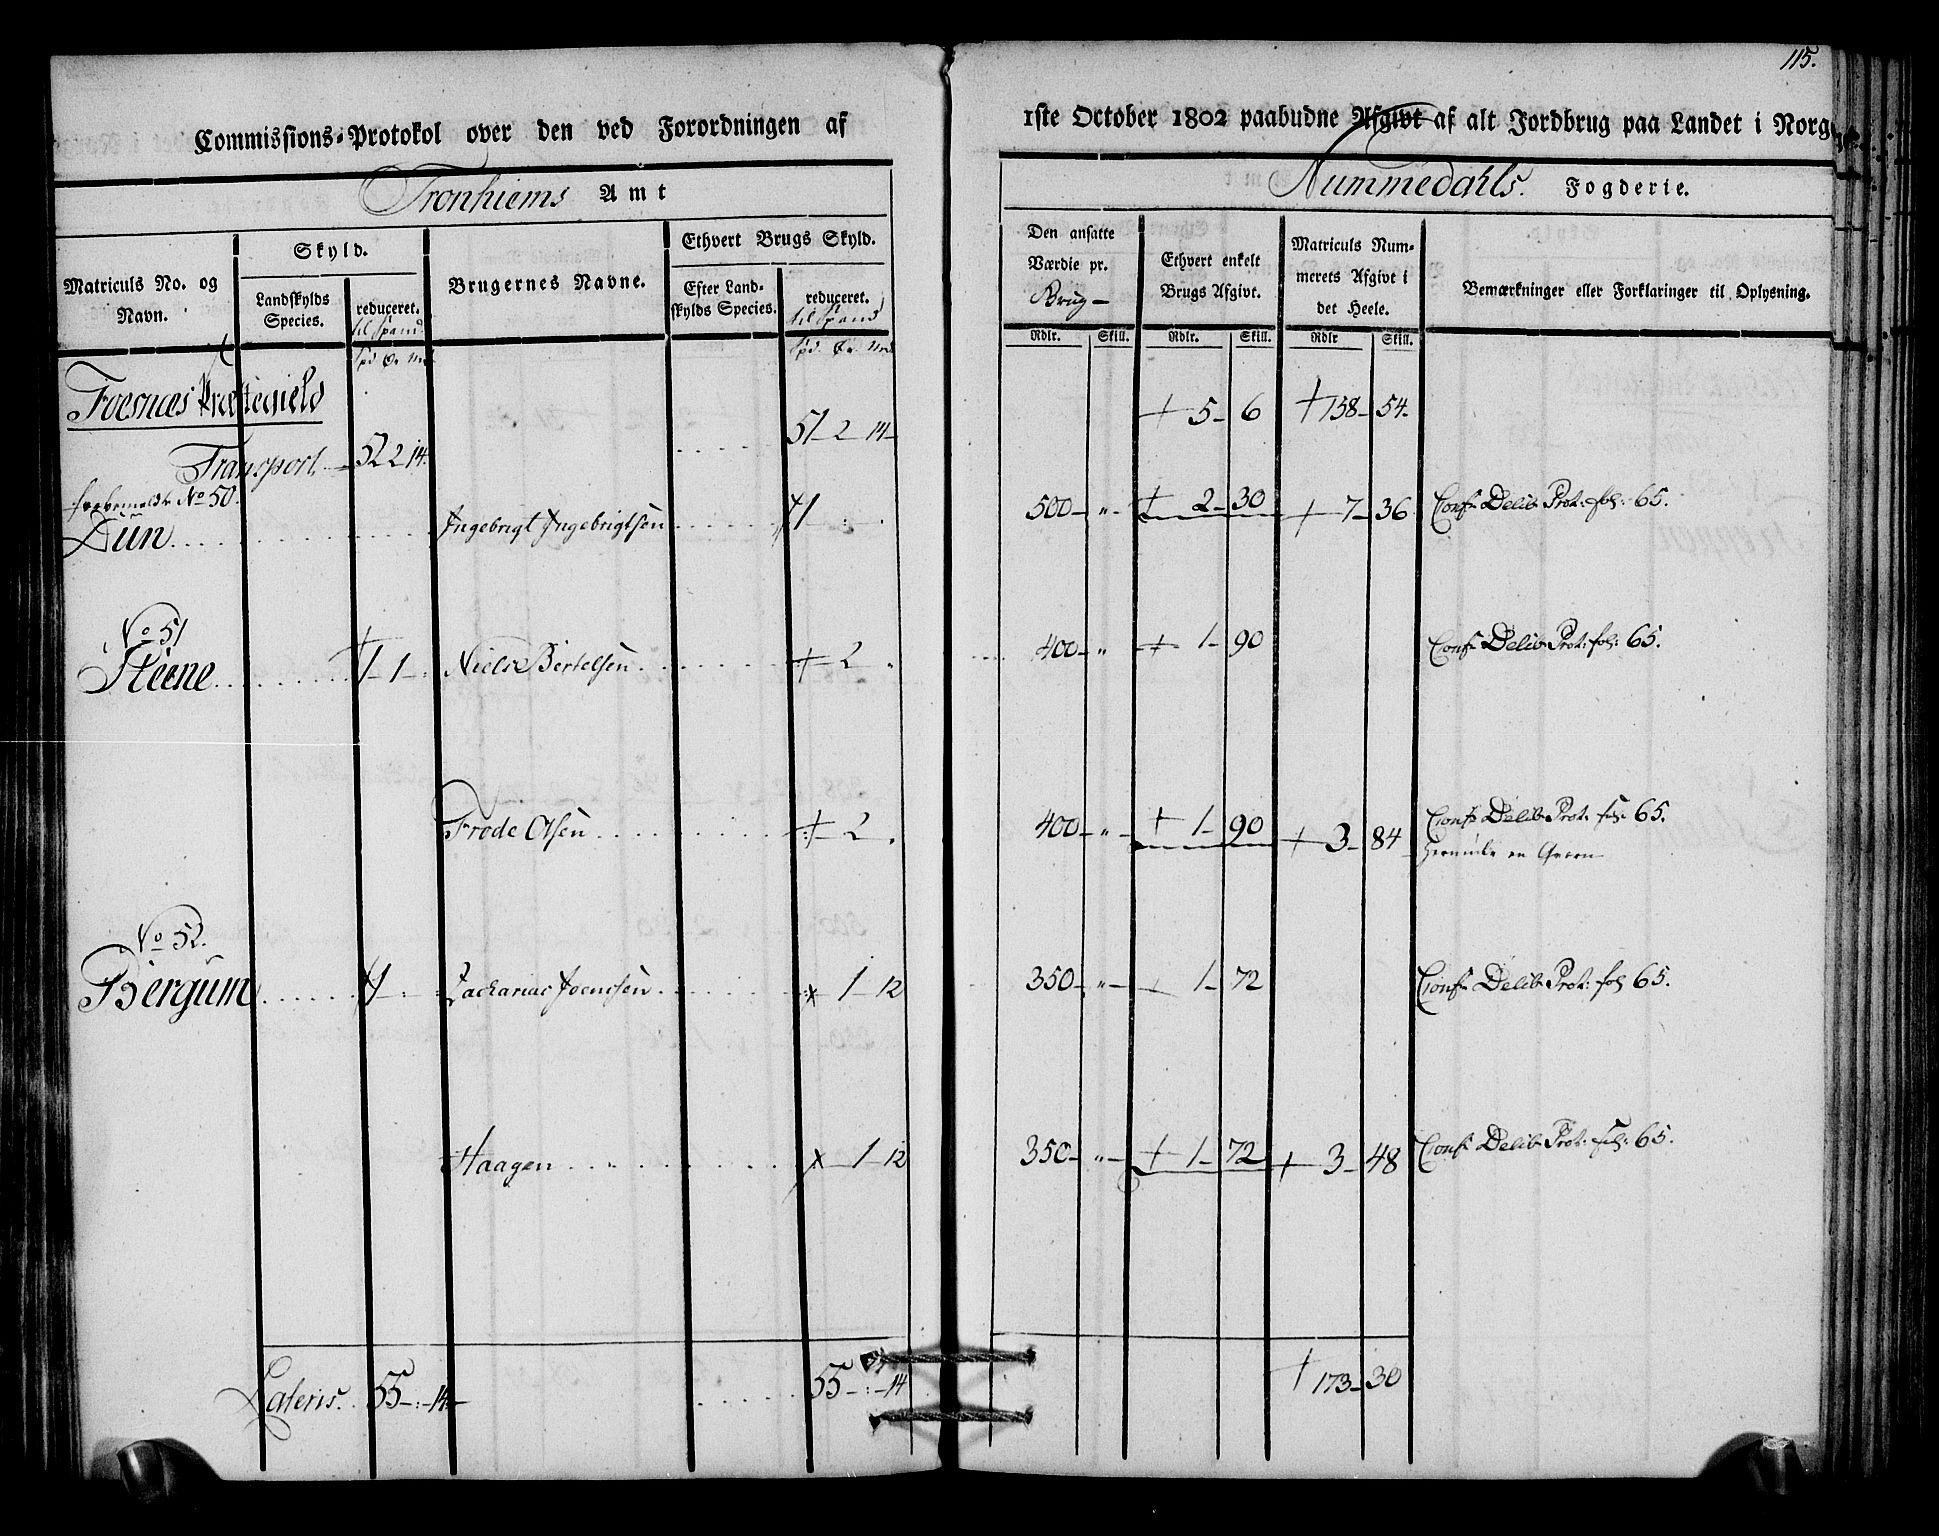 115.
Commissions-Protokol over den ved Forordningen af 1ste October 1802 paabudne Afgivt af alt Jordbrug paa Landet i Norge
Tronhiems Amt
Nummedahls. Fogderie.
Matriculs No. og Navn.
Skyld.
Landskylds Species.
reduceret.
til Spand.
Brugernes Navne.
Ethvert Brugs Skyld.
Efter Landskylds Species.
reduceret.
til Spand
Den ansatte Værdie pr.
Brug
Ethvert enkelt Brugs Afgivt.
Matriculs Nummerets Afgivt i det Heele.
Bemærkninger eller Forklaringer til Oplysning.
Rdlr. Skill. Rdlr. Skill. Rdlr Skill.
Foesnæs Præstegield
Transport 52 2 14. 51 2 14 5 6 158 54.
No 50.
Dun Ingebrigt Ingebrigtsen 1 500 " 2 30 7 36 Conf Delib Prot: fol: 65.
No 51
Steene 1 1 Niels Bertelsen 2 400 " 1 90 Conf Delib Prot: fol: 65.
Frode Olsen 2 400 " 1 90 3 84 Conf Delib Prot: fol: 65.
en Qvern
No 52.
Bergum 1 Zacharias Joensen 1 12 350 " 1 72 Conf Delib Prot: fol 65.
Haagen " 1 12 350 " 1 72 3 48 Conf Delib Prot: fol: 65.
Lateris. 55 : 14 55 : 14 173 30